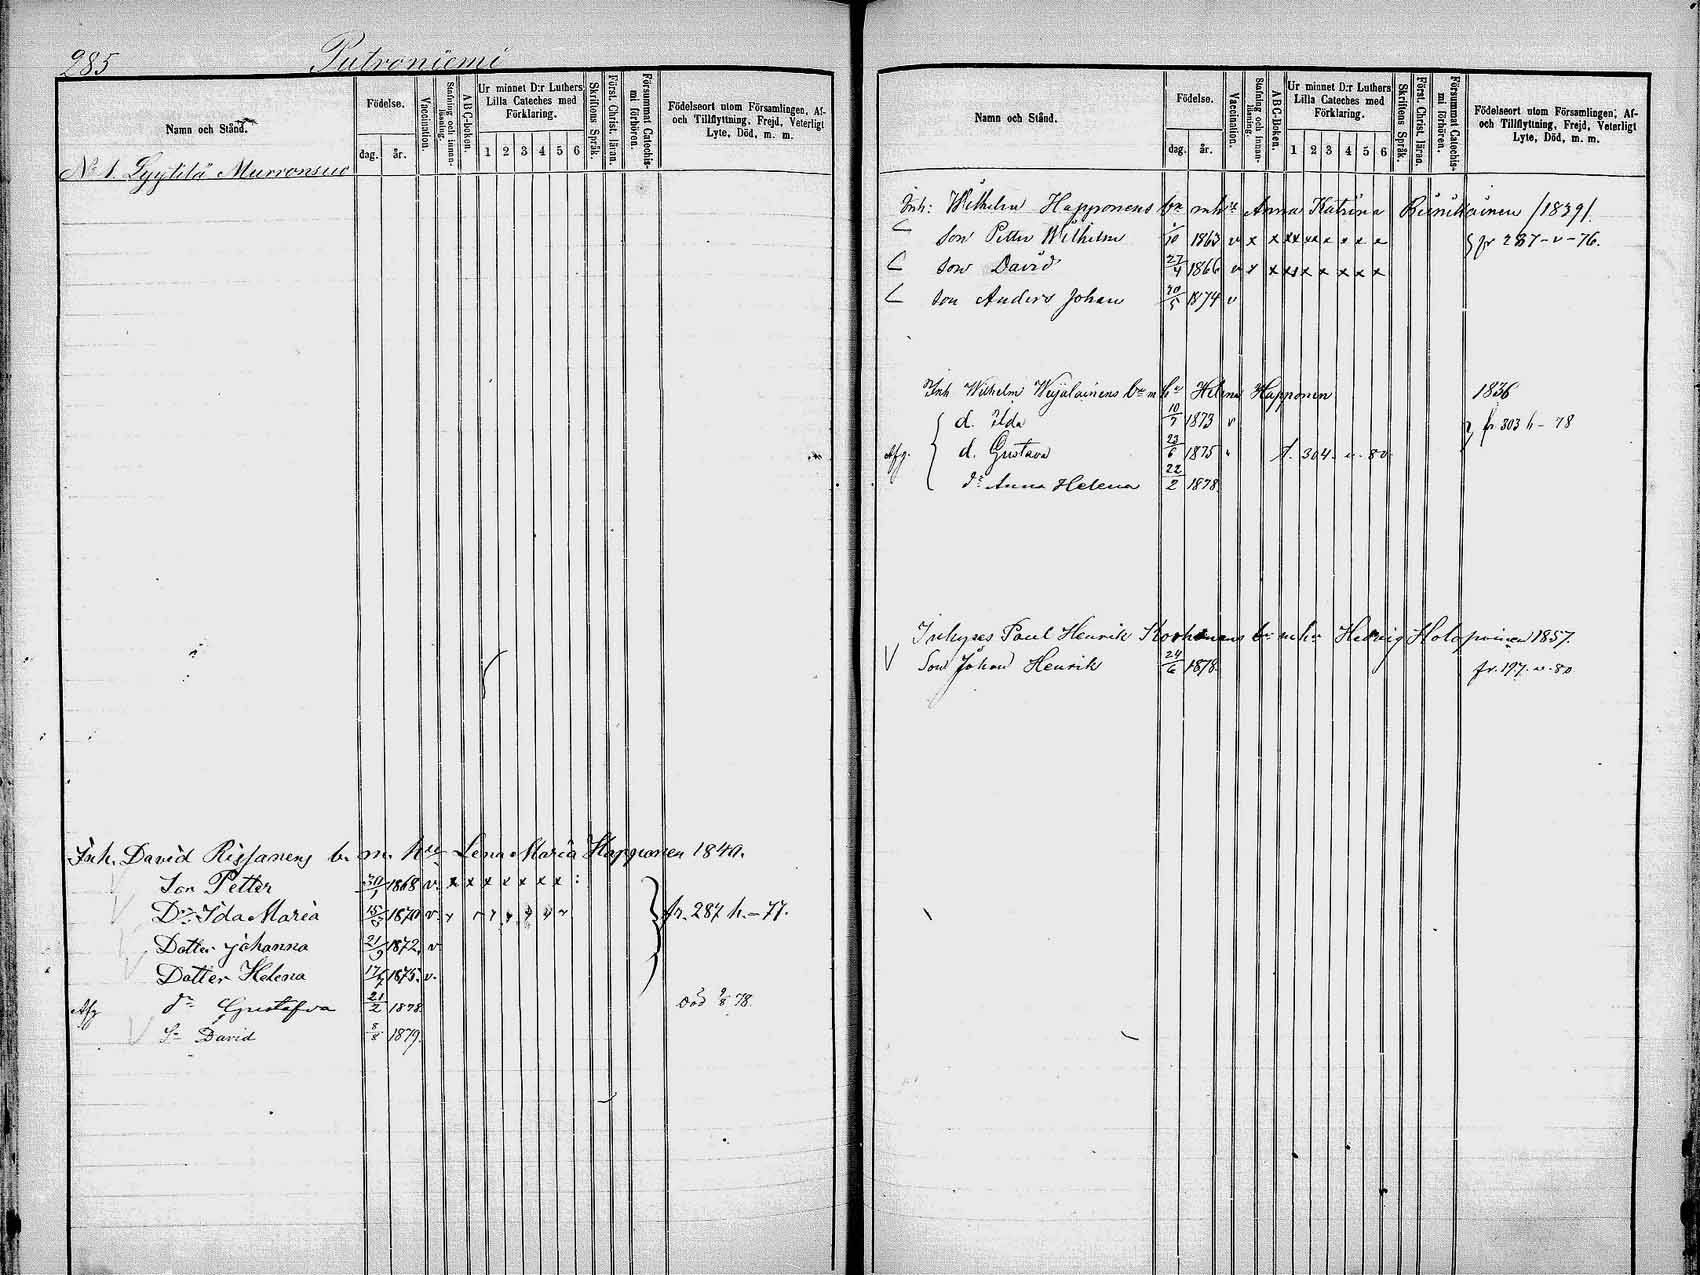 285 Putroniemi
Namn och Stånd.
Födelse.
dag. år.
Vaccination.
Stafning och innanläsning.
A B C-boken.
Ur minnet D:r Luthers Lilla Cateches med Förklaring.
1 2 3 4 5 6
Skriftens Språk.
Först. Christ. läran.
Försummat Catechismi förhören.
Födelseort utom Församlingen, Af- och Tillflyttning, Frejd, Veterligt Lyte, Död, m. m.
No 1. Lyytilä Murronsuo
Inh. David Rissanens b. m. h. Lena Maria Happonen 1840.
Son Petter 30/1 1868 v. x x x x x x x
Dr. Ida Maria 15/5 1870 v. fr. 287 h.-77.
Dotter Johanna 21/9 1872. v
Dotter Helena 17/7 1875. v.
Afg dr Gustafva 21/2 1878. Död 9/8 78.
Sn David 8/8 1879.
Namn och Stånd.
Födelse.
dag. år.
Vaccination.
Stafning och innanläsning.
A B C-Boken.
Ur minnet D:r Luthers Lilla Cateches med Förklaring.
1 2 3 4 5 6
Skriftens Språk.
Först. Christ. läran.
Försummat Catechismi förhören.
Födelseort utom Församlingen, Af- och Tillflyttning, Frejd, Veterligt Lyte, Död, m. m.
Inh: Wilhelm Happonens bn mhu Anna Katrina /1839/.
Son Petter Wilhelm 1/10 1863 v x x xx xx x x x x fr 287-v-76.
Son David 27/4 1866 v x x xx x x x x x
Son Anders Johan 30/5 1874 v
Inh Wilhelm Weijalainens bn m hu Helena Happonen 1836
d. Ilda 10/7 1873 v fr 303 h-78
Afg. d. Gustava 23/6 1875 t. 304. v. 80
dr Anna Helena 22/2 1878.
Inhyses Paul Henrik Korhonens bn mhu Hedvig Holopainen 1857.
V Son Johan Henrik 24/6 1878. fr. 197. v. 80